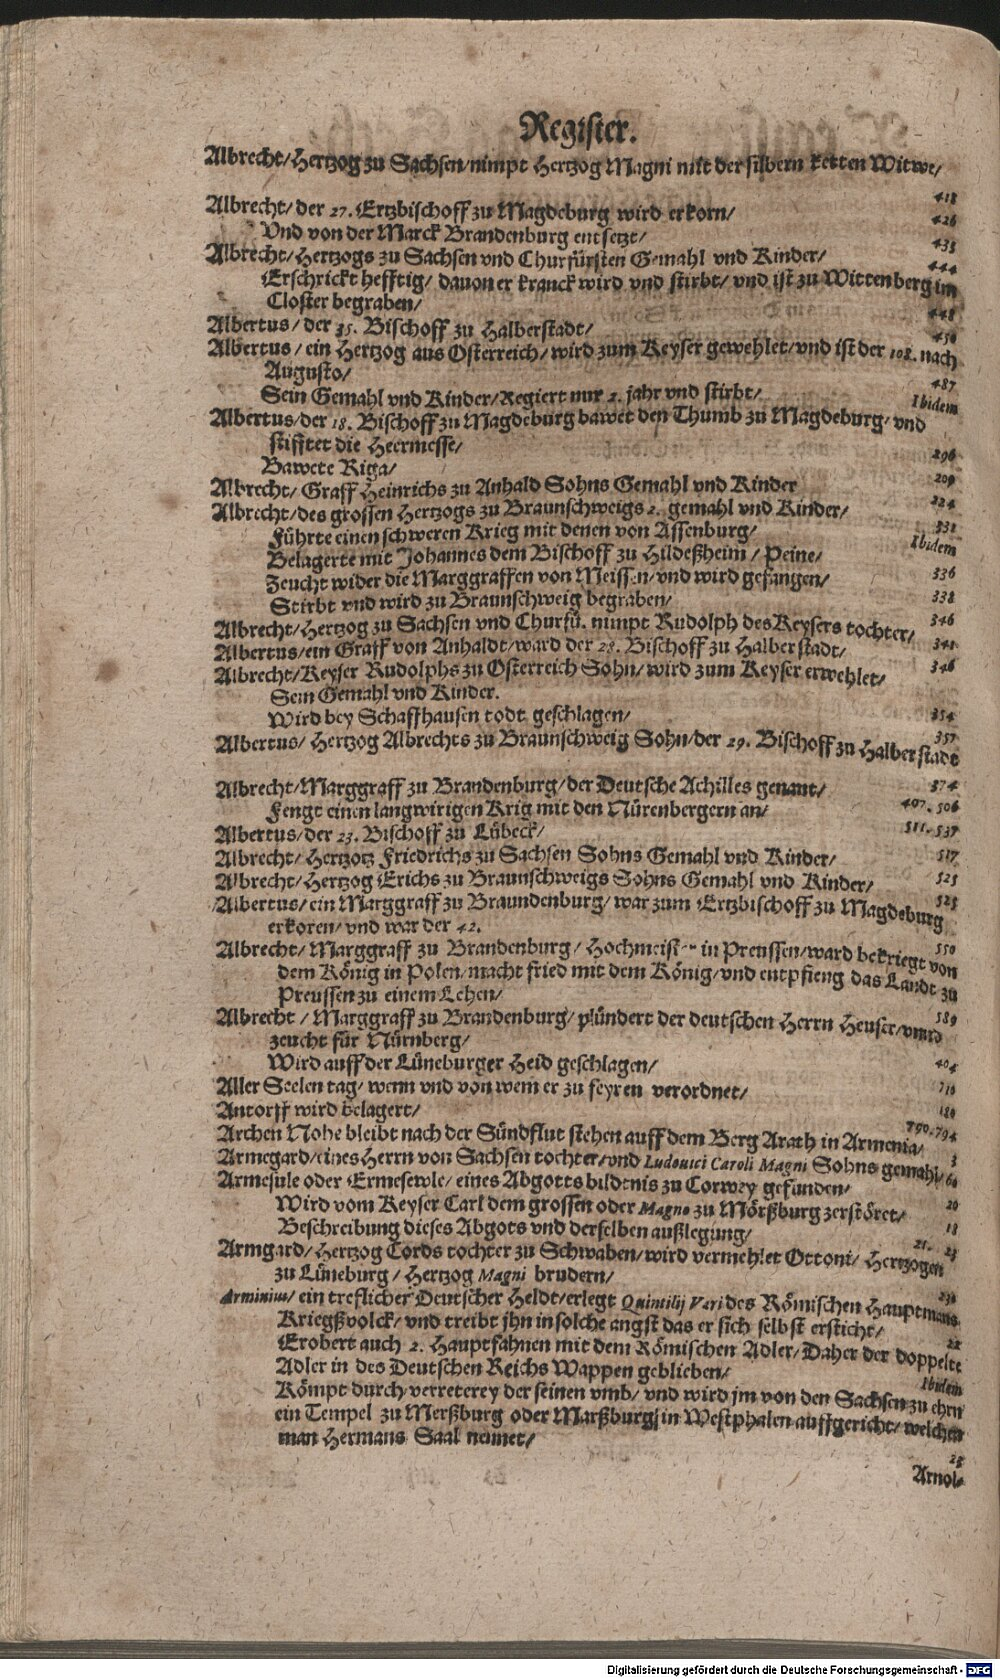 Register.
Albrecht/ Hertzog zu Sachsen/ nimpt Hertzog Magni mit der silbern ketten Witwe/
418
Albrecht/ der 27. Ertzbischoff zu Magdeburg wird erkorn/ 426
Vnd von der Marck Brandenburg entsetzt/ 435
Albrecht/ Hertzogs zu Sachsen vnd Churfürsten Gemahl vnd Kinder/ 444
Erschrickt hefftig/ dauon er kranck wird vnd stirbt/ vnd ist zu Wittenberg im
Closter begraben/ 448
Albertus/ der 35. Bischoff zu Halberstadt/ 450
Albertus/ ein Hertzog aus Osterreich/ wird zum Keyser gewehlet/ vnd ist der 108. nach
Augusto/ 487
Sein Gemahl vnd Kinder/ Regiert nur 2. jahr vnd stirbt/ Ibidem
Albertus/ der 18. Bischoff zu Magdeburg bawet den Thumb zu Magdeburg/ vnd
stifftet die Heermesse/ 296
Bawete Riga/ 209
Albrecht/ Graff Heinrichs zu Anhald Sohns Gemahl vnd Kinder 224
Albrecht/ des grossen Hertzogs zu Braunschweigs 2. gemahl vnd Kinder/ 331
Führte einen schweren Krieg mit denen von Assenburg/ Ibidem
Belagerte mit Johannes dem Bischoff zu Hildeßheim/ Peine/ 336
Zeucht wider die Marggraffen von Meissen/ vnd wird gefangen/ 338
Stirbt vnd wird zu Braunschweig begraben/ 346
Albrecht/ Hertzog zu Sachsen vnd Churfü. nimpt Rudolph des Keysers tochter/ 341
Albertus/ ein Graff von Anhaldt/ ward der 28. Bischoff zu Halberstadt/ 346
Albrecht/ Keyser Rudolphs zu Osterreich Sohn/ wird zum Keyser erwehlet/
Sein Gemahl vnd Kinder. 354
Wird bey Schaffhausen todt geschlagen/ 357
Albertus/ Hertzog Albrechts zu Braunschweig Sohn/ der 29. Bischoff zu Halberstadt
374
Albrecht/ Marggraff zu Brandenburg/ der Deutsche Achilles genant/ 497. 506
Fengt einen langwirigen Krig mit den Nürenbergern an/ 511. 537
Albertus/ der 23. Bischoff zu Lübeck/ 517
Albrecht/ Hertzotz Friedrichs zu Sachsen Sohns Gemahl vnd Kinder/ 523
Albrecht/ Hertzog Erichs zu Braunschweigs Sohns Gemahl vnd Kinder/ 525
Albertus/ ein Marggraff zu Braundenburg/ war zum Ertzbischoff zu Magdeburg
erkoren/ vnd war der 42. 550
Albrecht/ Marggraff zu Brandenburg/ Hochmeister in Preussen/ ward bekriegt von
dem König in Polen/ macht fried mit dem König/ vnd entpfieng das Landt zu
Preussen zu einem Lehen/ 589
Albrecht/ Marggraff zu Brandenburg/ plündert der deutschen Herrn Heuser/
zeucht für Nürnberg/ 404
Wird auff der Lüneburger Heid geschlagen/ 710
Aller Seelen tag/ wenn vnd von wem er zu feyren verordnet/ 180
Antorff wird belagert/ 790. 794
Archen Nohe bleibt nach der Sündflut stehen auff dem Berg Arath in Armenia/ 3
Armegard/ eines Herrn von Sachsen tochter/ vnd Ludouici Caroli Magni Sohns gemahl/ 60
Armesule oder Ermesewle/ eines Abgotts bildtnis zu Corwey gefunden/ 20
Wird vom Keyser Carl dem grossen oder Magno zu Mörßburg zerstöret/ 18
Beschreibung dieses Abgots vnd derselben außlegung/ 21. 23
Armgard/ Hertzog Cords tochter zu Schwaben/ wird vermehlet Ottoni/ Hertzogen
zu Lüneburg/ Hertzog Magni brudern/
Arminius/ ein treflicher Deutscher Heldt/ erlegt Quintilij Vari des Römischen Hauptmans
Kriegßvolck/ vnd treibt jhn in solche angst das er sich selbst ersticht/ 22
Erobert auch 2. Hauptfahnen mit dem Römischen Adler/ Daher der doppelte
Adler in des Deutschen Reichs Wappen geblieben/ Ibidem
Kömpt durch verreterey der seinen vmb/ vnd wird jm von den Sachsen zu ehrn
ein Tempel zu Merßburg oder Marßburg/ in Westphalen auffgericht/ welchen
man Hermans Saal nennet/ 23
Arnol-
Digitalisierung gefördert durch die Deutsche Forschungsgemeinschaft - DFG